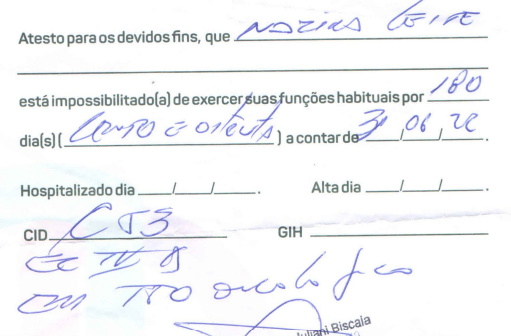 Atesto para os devidos fins, que NAZIRA LEITE
está impossibilitado(a) de exercer suas funções habituais por 180
dia(s) (cento e oitenta) a contar de 30/06/22.
Hospitalizado dia ___/___/___. Alta dia ___/___/___.
CID C53 GIH
EC IV B
em TTO oncológico
Juliani Biscaia